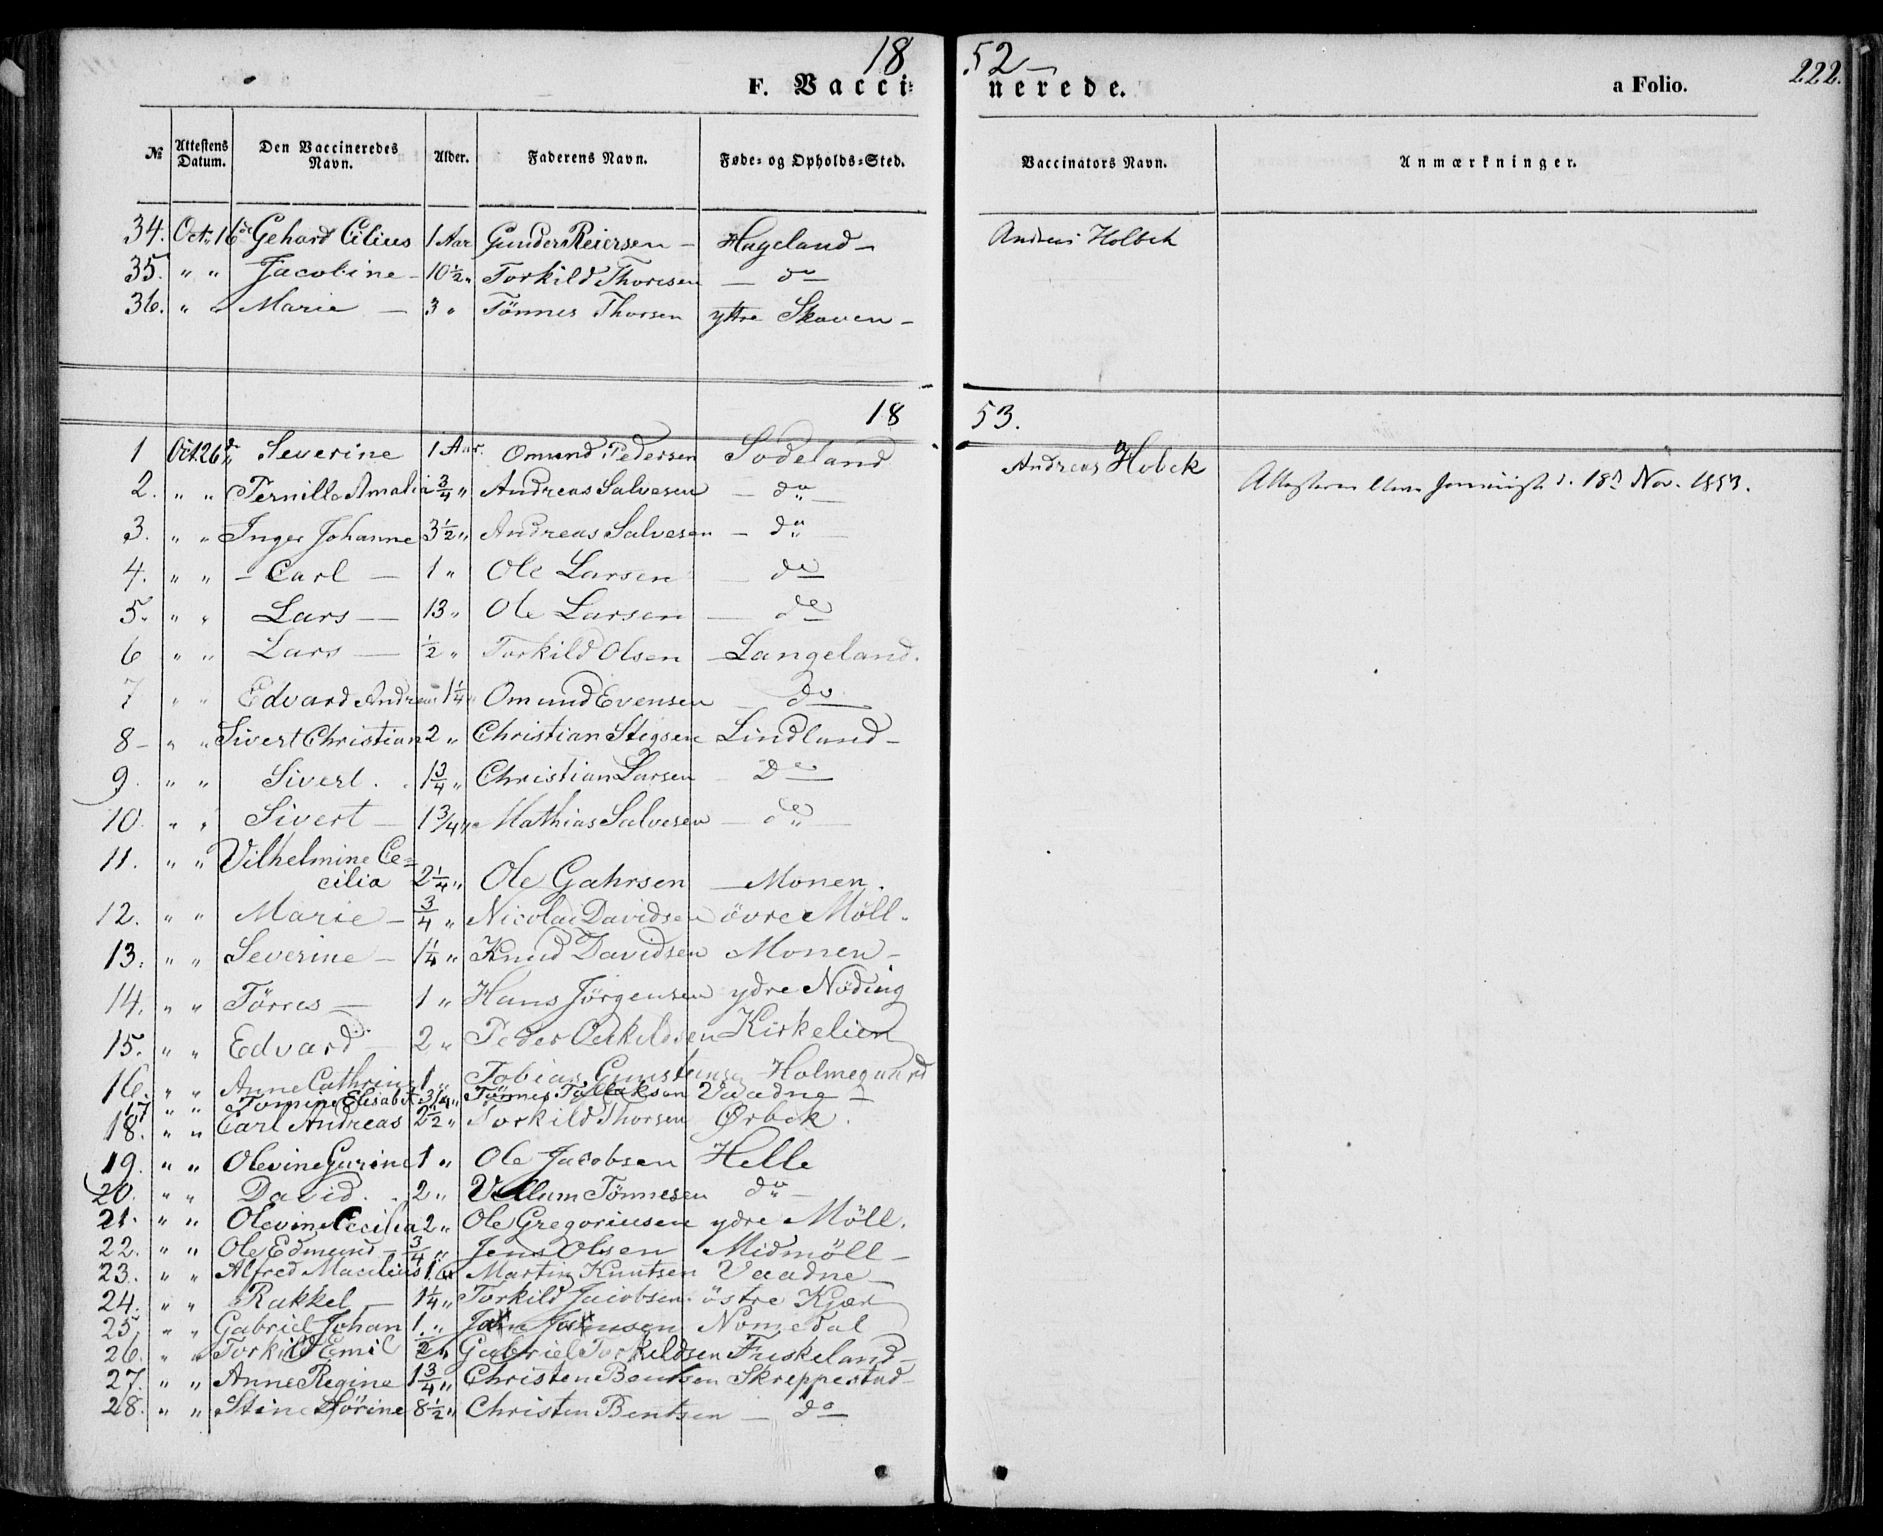 18 52 —
F. Vacci= nerede. a Folio. 222.
№ Attestens Datum. Den Vaccineredes Navn. Alder. Faderens Navn. Føde= og Opholds=Sted. Vaccinators Navn. Anmærkninger.
34. Oct. 16de Gehard Cilius 1 Aar Gunder Reiersen — Hageland — Andreas Holbek
35. " " Jacobine — 10 1/2 " Torkild Thoresen — do
36. " " Marie — 3 " Tönnes Thorsen yttre Skoven —
18 53.
1 Oct. 26de Severine 1 Aar. Omund Pedersen Sodeland Andreas Hobek
2. " " Pernille Amalia 3/4 " Andreas Salvesen — do — 18de Nov. 1853.
3. " " Inger Johanne 3 1/2 " Andreas Salvesen — do —
4. " " — Carl — 1 " Ole Larsen — do
5. " " Lars — 13 " Ole Larsen — do
6 " " Lars — 1/2 " Torkild Olsen — Langeland.
7 " " Edvard Andreas 1 1/4 " Omund Evensen — do
8 — " " Sivert Christian 2 " Christian Stigsen Lindland —
9. " " Sivert. 1 3/4 " Christian Larsen — Do
10. " " Sivert — 1 3/4 " Mathias Salvesen — do —
11. " " Vilhelmine Ce=
cilia 2 1/4 " Ole Gahrsen — Monen.
12. " " Marie — 3/4 " Nicolai Davidsen övre Möll.
13. " " Severine — 1 1/4 " Knud Davidsen Monen —
14. " " Törres — 1 " Hans Jörgensen ydre Nöding
15. " " Edvard — 2 " Peder Kirkelien
16. " " Anne Cathrine 1 " Tobias Gunstensen Holmegaard
17 " " Tomine Elisabet 3/4 " Tönnes Tallaksen Vaadne —
18. " " Carl Andreas 2 1/2 " Torkild Thorsen Ørbek.
19. " " Olevine Gurine 1 " Ole Jacobsen Helle
20. " " David. 2 " Vellum Tönnesen do —
21. " " Olevine Cecilia 2 " Ole Gregoriusen ydre Möll.
22. " " Ole Edmund — 3/4 " Jens Olsen Midmöll —
23. " " Alfred 1 " Martin Knutsen Vaadne —
24. " " Rakkel — 1 1/4 " Torkild Jacobsen. östre Kjær
25 " " Gabriel Johan 1. " Nomedal
26. " " Torkild Emil 1/2 " Gabriel Torkildsen Friskeland —
27. " " Anne Regine 1 3/4 " Christen Bentsen Skreppestad —
28. " " Stine Sörine 8 1/2 " Christen Bentsen — do